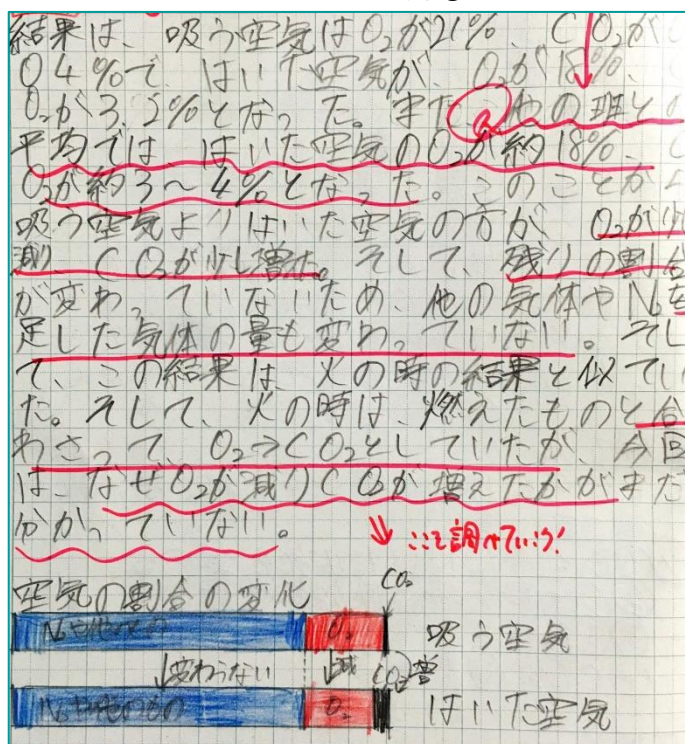 結果は、吸う空気はO₂が21%、CO₂が
04%で はいた空気が、O₂が18%、
O₂が3.2%となった。また a 他の班との
平均では、はいた空気のO₂が約18%、C
O₂が約3～4%となった。このことから
吸う空気よりはいた空気の方が O₂が少
減り CO₂が少し増えた。そして、残りの割合
が変わっていないため、他の気体やN₂を
足した気体の量も変わっていない。そし
て、この結果は、火の時の結果と似てい
た。そして、火の時は、燃えたものと合
わさって、O₂→CO₂としていたが、今回
は、なぜO₂が減りCO₂が増えたかがまだ
分かっていない。
ここも調べていこう!
空気の割合の変化 CO₂
N₂や他のもの O₂ 吸う空気
↓変わらない ↓減 CO₂増
N₂や他のもの O₂ はいた空気